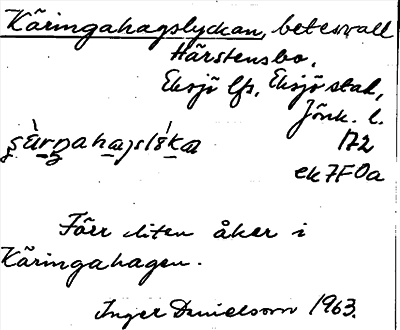 Käringahagslyckan, betesvall
Härstensbo,
Eksjö lfs, Eksjö stad,
Jönk. l.
172
ek7F0a
Förr liten åker i
Käringahagen.
Inger Danielsson 1963.